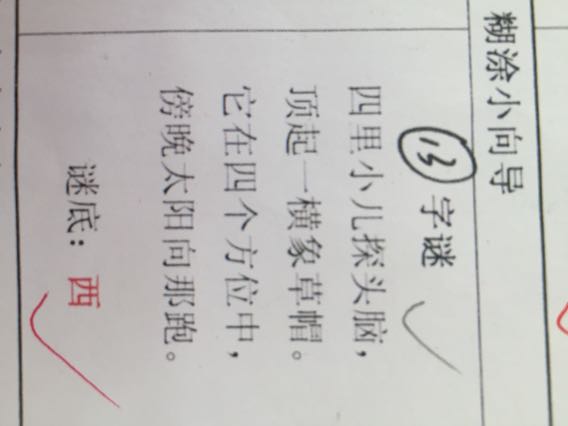 糊涂小向导
13 字谜
四里小儿探头脑，
顶起一横象草帽。
它在四个方位中，
傍晚太阳向那跑。
谜底：西